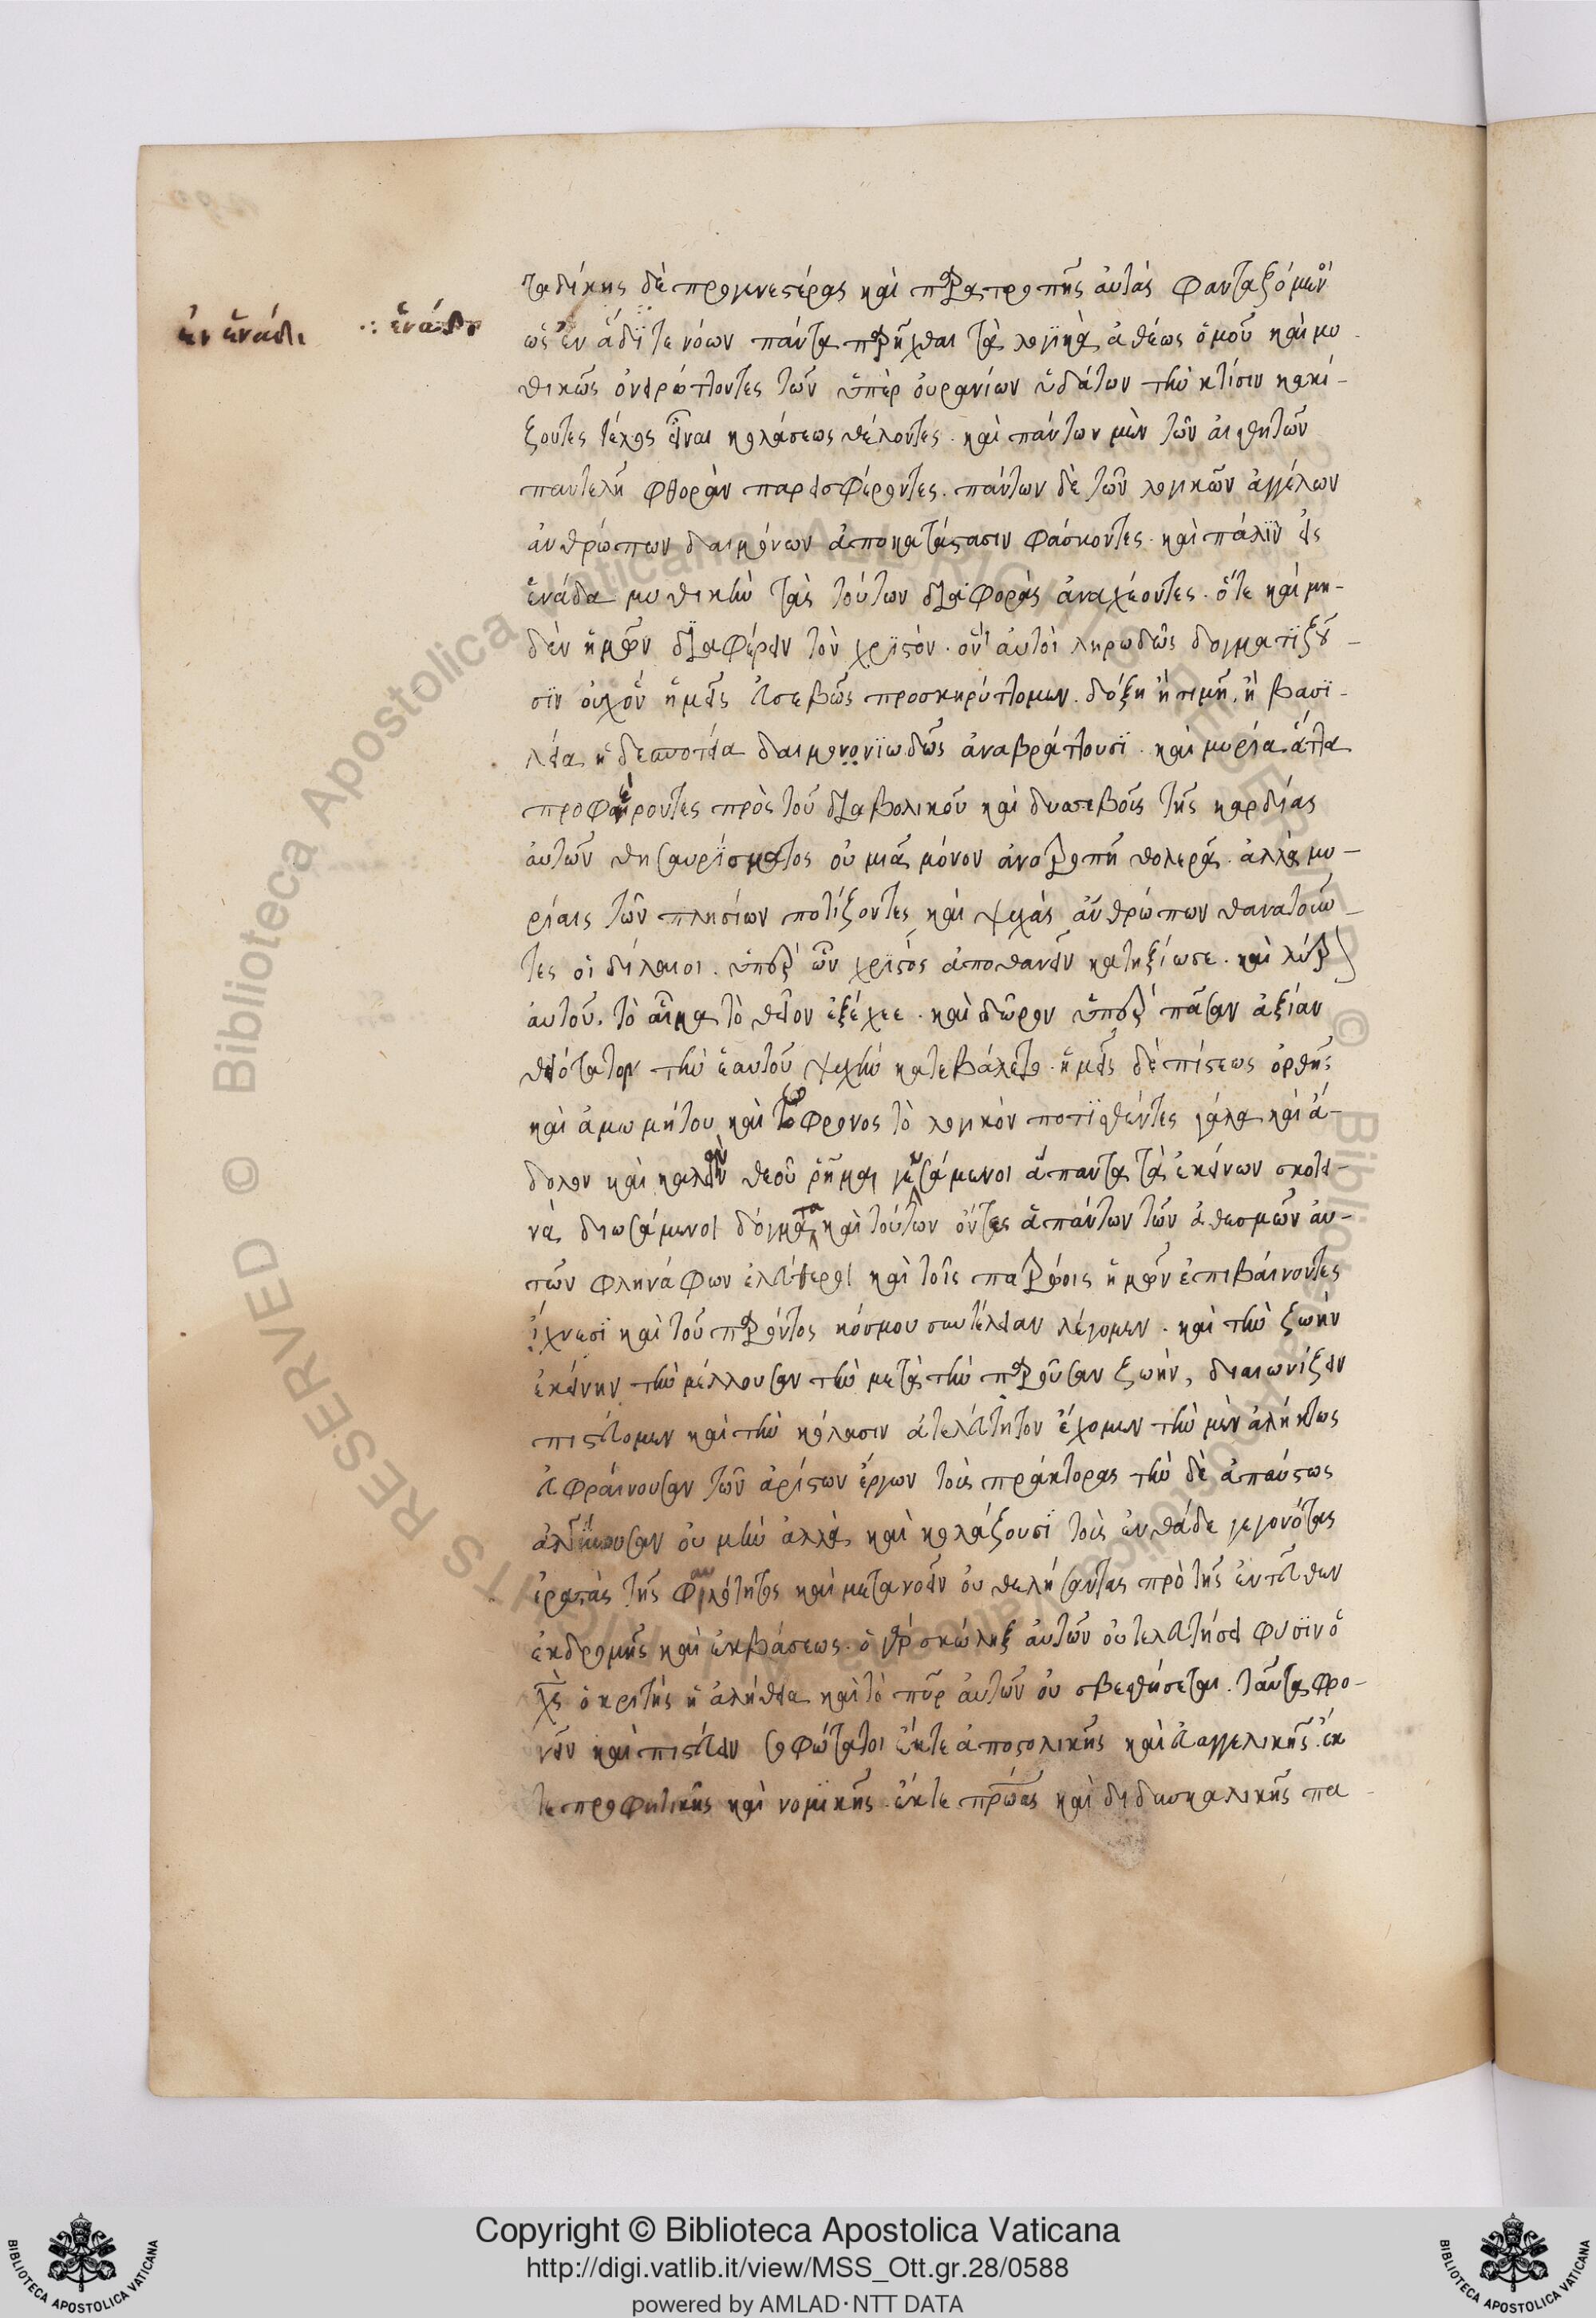 ἐν ἑνάδι
∴ ἑνάδι
τα δίκης δὲ προγενεστέρας καὶ παρατροπῆς αὐτὰς φανταζόμεν
ὡς ἐν ἄδϊ τε νόων πάντα παρῆχθαι τὰ λογικὰ ἀθέως ὁμοῦ καὶ μυ
θικῶς ὀνειρώττοντες τῶν ὑπὲρ οὐρανίων ὑδάτων τὴν κτίσιν κακί-
ζοντες τέλος εἶναι κολάσεως θέλοντες. καὶ πάντων μὲν τῶν αἰσθητῶν
παντελῆ φθορὰν παρεισφέροντες. πάντων δὲ τῶν λογικῶν ἀγγέλων
ἀνθρώπων δαιμόνων ἀποκατάστασιν φάσκοντες. καὶ πάλϊν εἰς
ἑνάδα μυθικὴν τὰς τούτων διαφορὰς ἀναχέοντες. ὅτε καὶ μη-
δὲν ἡμῶν διαφέρειν τὸν χρϊστόν. ὃν αὐτοὶ ληρωδῶς δογματίζου-
σϊν οὐχ ὃν ἡμεῖς εὐσεβῶς προσκηρύττομεν. δόξη ἢ τιμῆ, ἢ βασϊ-
λεία ἢ δεσποτεία δαιμονονϊωδῶς ἀναβράττουσϊ. καὶ μυρία ἄττα
προφέροντες πρὸς τοῦ διαβολικοῦ καὶ δυσσεβοῦς τῆς καρδίας
αὐτῶν θησαυρϊσματος οὐ μιᾶ μόνον ἀνατροπῆ θολερᾶ. ἀλλὰ μυ-
ρίαις τῶν πλησίων ποτίζοντες καὶ ψυχὰς ἀνθρώπων θανατοῦν-
τες οἱ δείλαιοι. ὑπὲρ ὧν χρϊστὸς ἀποθανεῖν κατηξίωσε. καὶ λύτρον
αὐτοῦ. τὸ αἷμα τὸ θεῖον ἐξέχεε. καὶ δῶρον ὑπὲρ πᾶσαν ἀξίαν
θειότατον τὴν ἑαυτοῦ ψυχὴν κατεβάλετο. ἡμεῖς δὲ πίστεως ὀρθῆς
καὶ ἀμωμήτου καὶ σώφρονος τὸ λογικὸν ποτϊσθέντες γάλα καὶ ἄ-
δολον καὶ καλὸν θεοῦ ῥῆμα γευσάμενοι ἅπαντα τὰ ἐκείνων σκοτει-
νὰ διωσάμενοι δόγματα καὶ τούτων ὄντες ἁπάντων τῶν ἀθέσμων αὐ-
τῶν φληνάφων ἐλεύθεροι καὶ τοῖς πατρώοις ἡμῶν ἐπιβαίνοντες
ἴχνεσϊ καὶ τοῦ παρόντος κόσμου συντέλειαν λέγομεν. καὶ τὴν ζωὴν
ἐκείνην τὴν μέλλουσαν τὴν μετὰ τὴν παροῦσαν ζωὴν, διαιωνίζειν
πιστεύομεν καὶ τὴν κόλασιν ἀτελεύτητον ἔχομεν τὴν μὲν ἀλήκτως
εὐφραίνουσαν τῶν ἀρίστων ἔργων τοὺς πράκτορας τὴν δὲ ἀπαύστως
ἀλγύνουσαν οὐ μὴν ἀλλὰ καὶ κολάζουσϊ τοὺς ἐνθάδε γεγονότας
ἐραστὰς τῆς φαυλότητος καὶ μετανοεῖν οὐ θελήσαντας πρὸ τῆς ἐντεῦθεν
ἐκδρομῆς καὶ ἐκβάσεως. ὁ γὰρ σκώληξ αὐτῶν οὐ τελευτήσει φυσϊν ὁ
χς ὁ κριτὴς ἡ ἀλήθεια καὶ τὸ πῦρ αὐτῶν οὐ σβεσθήσεται. ταῦτα φρο-
νεῖν καὶ πιστεύειν σοφώτατοι ἔκ τε ἀποστολικῆς καὶ εὐαγγελικῆς. ἔκ
τε προφητικῆς καὶ νομϊκῆς. ἔκ τε πρώας καὶ διδασκαλικῆς πα
Copyright © Biblioteca Apostolica Vaticana
http://digi.vatlib.it/view/MSS_Ott.gr.28/0588
powered by AMLAD·NTT DATA